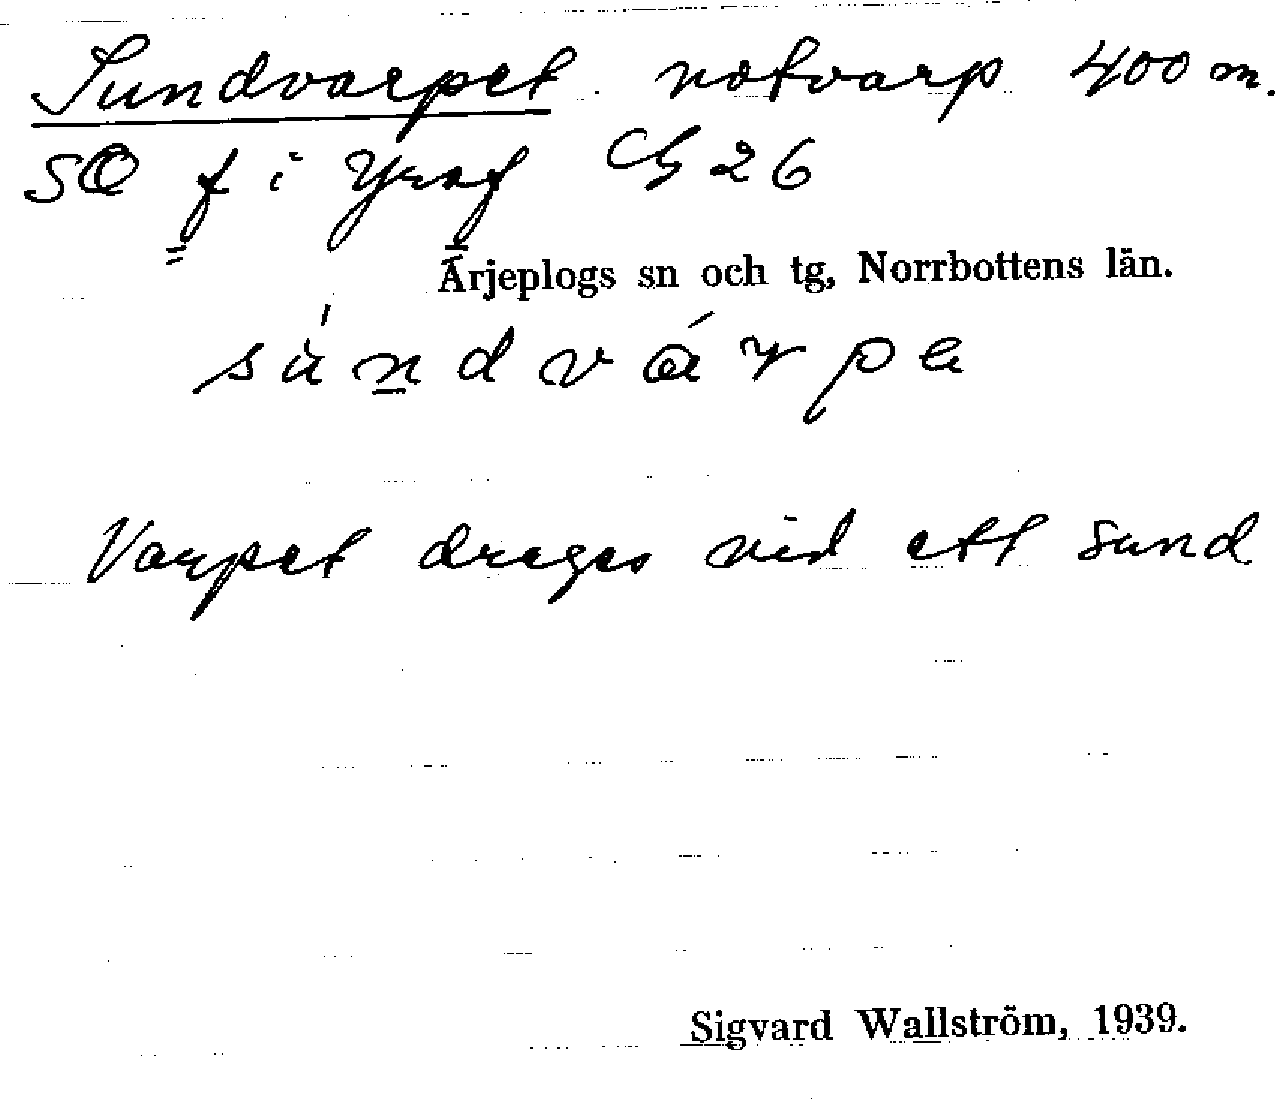 Sundvarpet notvarp 400 m.
SO f i Yraf Cb 26
Arjeplogs sn och tg, Norrbottens län.
sundvarpa
Varpet drages vid ett sund
Sigvard Wallström, 1939.